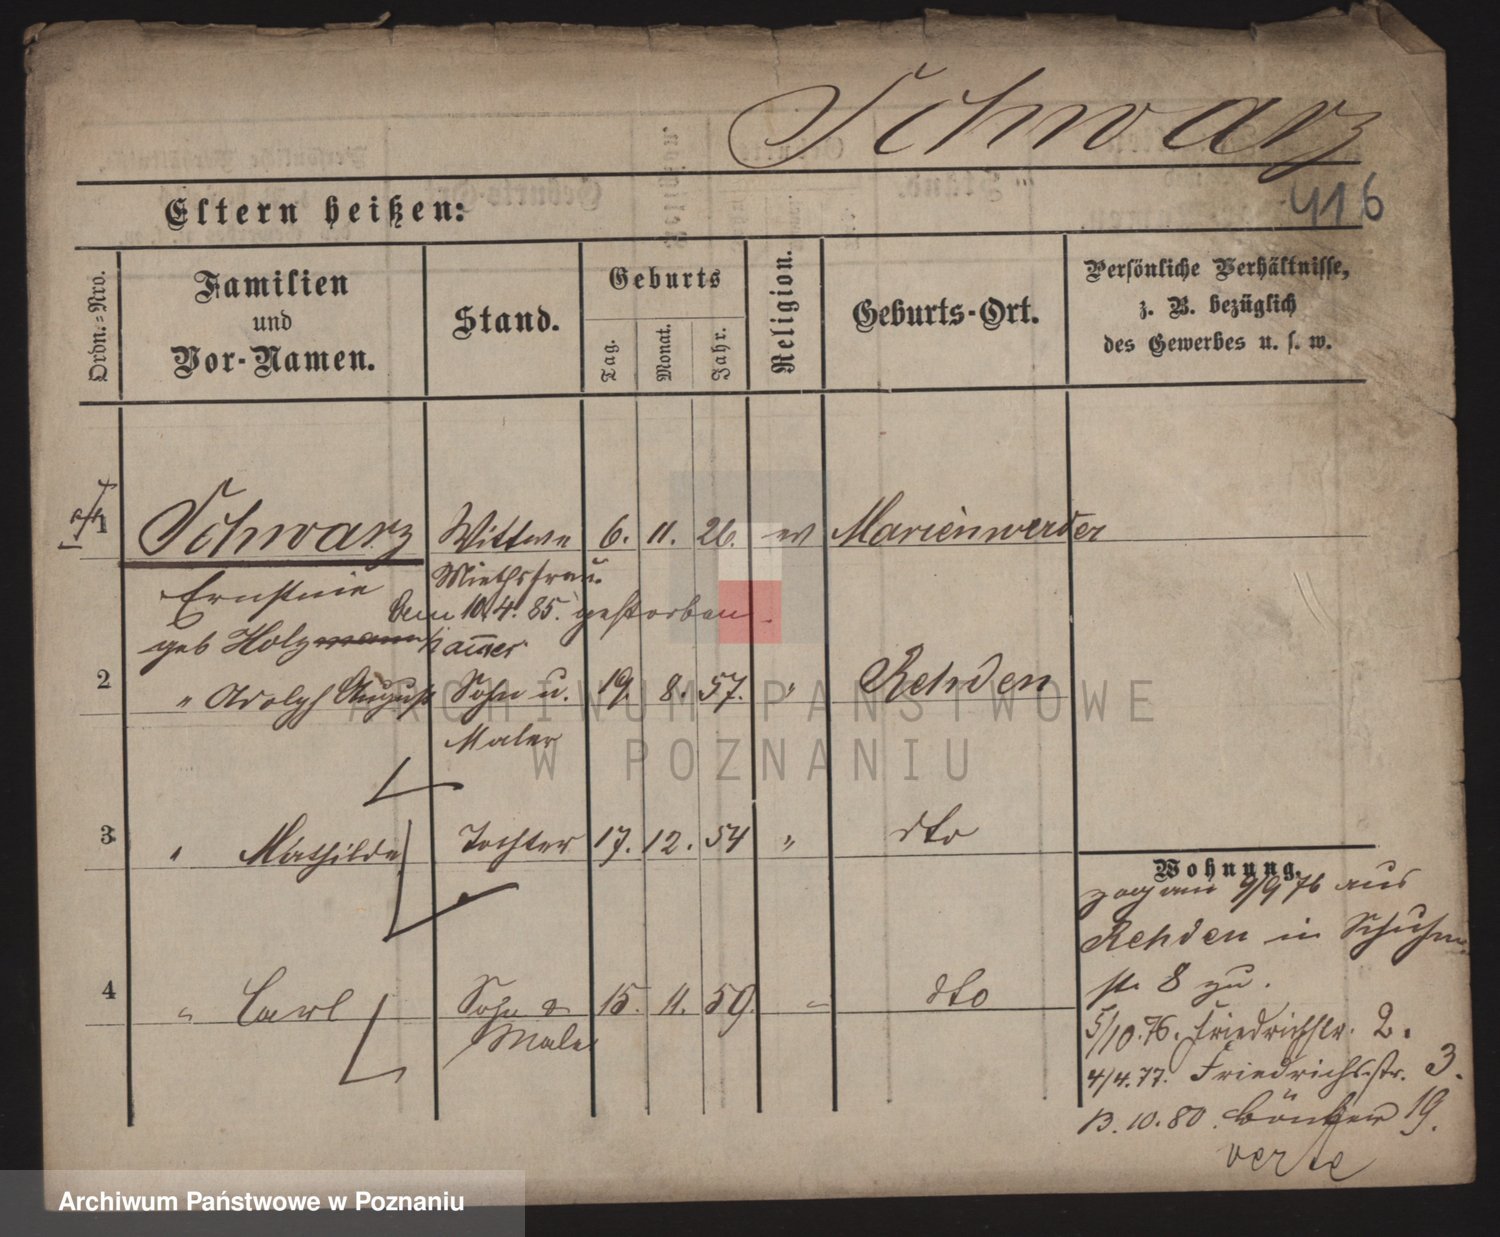 Schwarz
416
Eltern heißen:
Ordn.=Nro.
Familien
und
Vor-Namen.
Stand.
Geburts
Tag.
Monat.
Jahr.
Religion.
Geburts-Ort.
Persönliche Verhältnisse,
z. B. bezüglich
des Gewerbes u. s. w.
1 Schwarz Wittwe 6. 11. 26. ev Marienwerder
Ernstine Miethsfrau.
Am 10.4.85. gestorben
geb Holzmann hamer
2 " Adolph August Sohn u. 19. 8. 57. " Rehden
Maler
3 " Mathilde Tochter 17. 12. 54 " dto
4 " Carl Sohn & 15. 11. 59. " dto
Maler
Wohnung.
zog am 9/9 76 aus
Rehden in Schuhm
str 8 zu.
5/10.76. Friedrichstr. 2.
4/4.77. Friedrichsstr. 3.
13.10.80. 19.
verte
ARCHIWUM PAŃSTWOWE
W POZNANIU
Archiwum Państwowe w Poznaniu